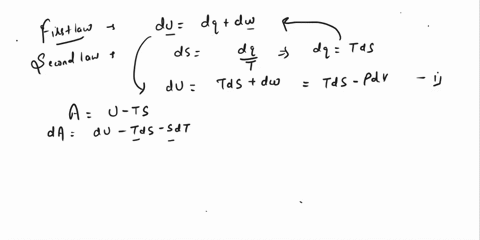 First law → dU = dq + dw
Second law → dS = dq/T ⇒ dq = TdS
dU = TdS + dw = TdS - Pdv - i)
A = U - TS
dA = dU - TdS - SdT